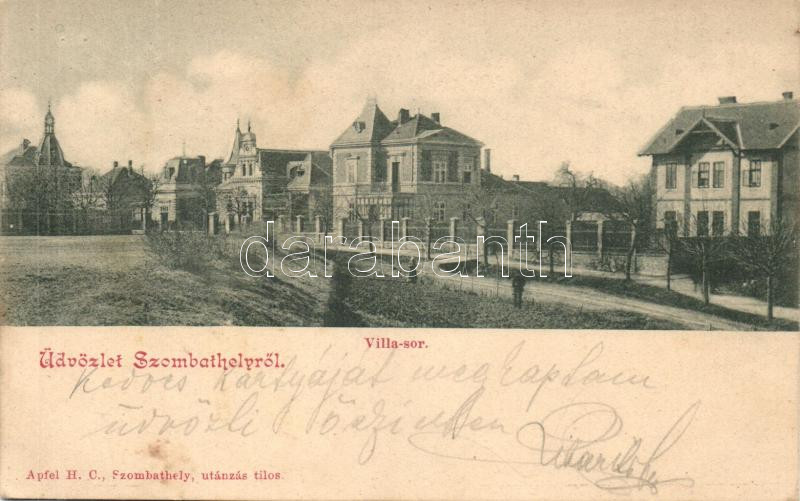 darabanth
Villa-sor.
Üdvözlet Szombathelyről.
Kedves kártyáját megkaptam
üdvözli őszintén
Apfel H. C., Szombathely, utánzás tilos.